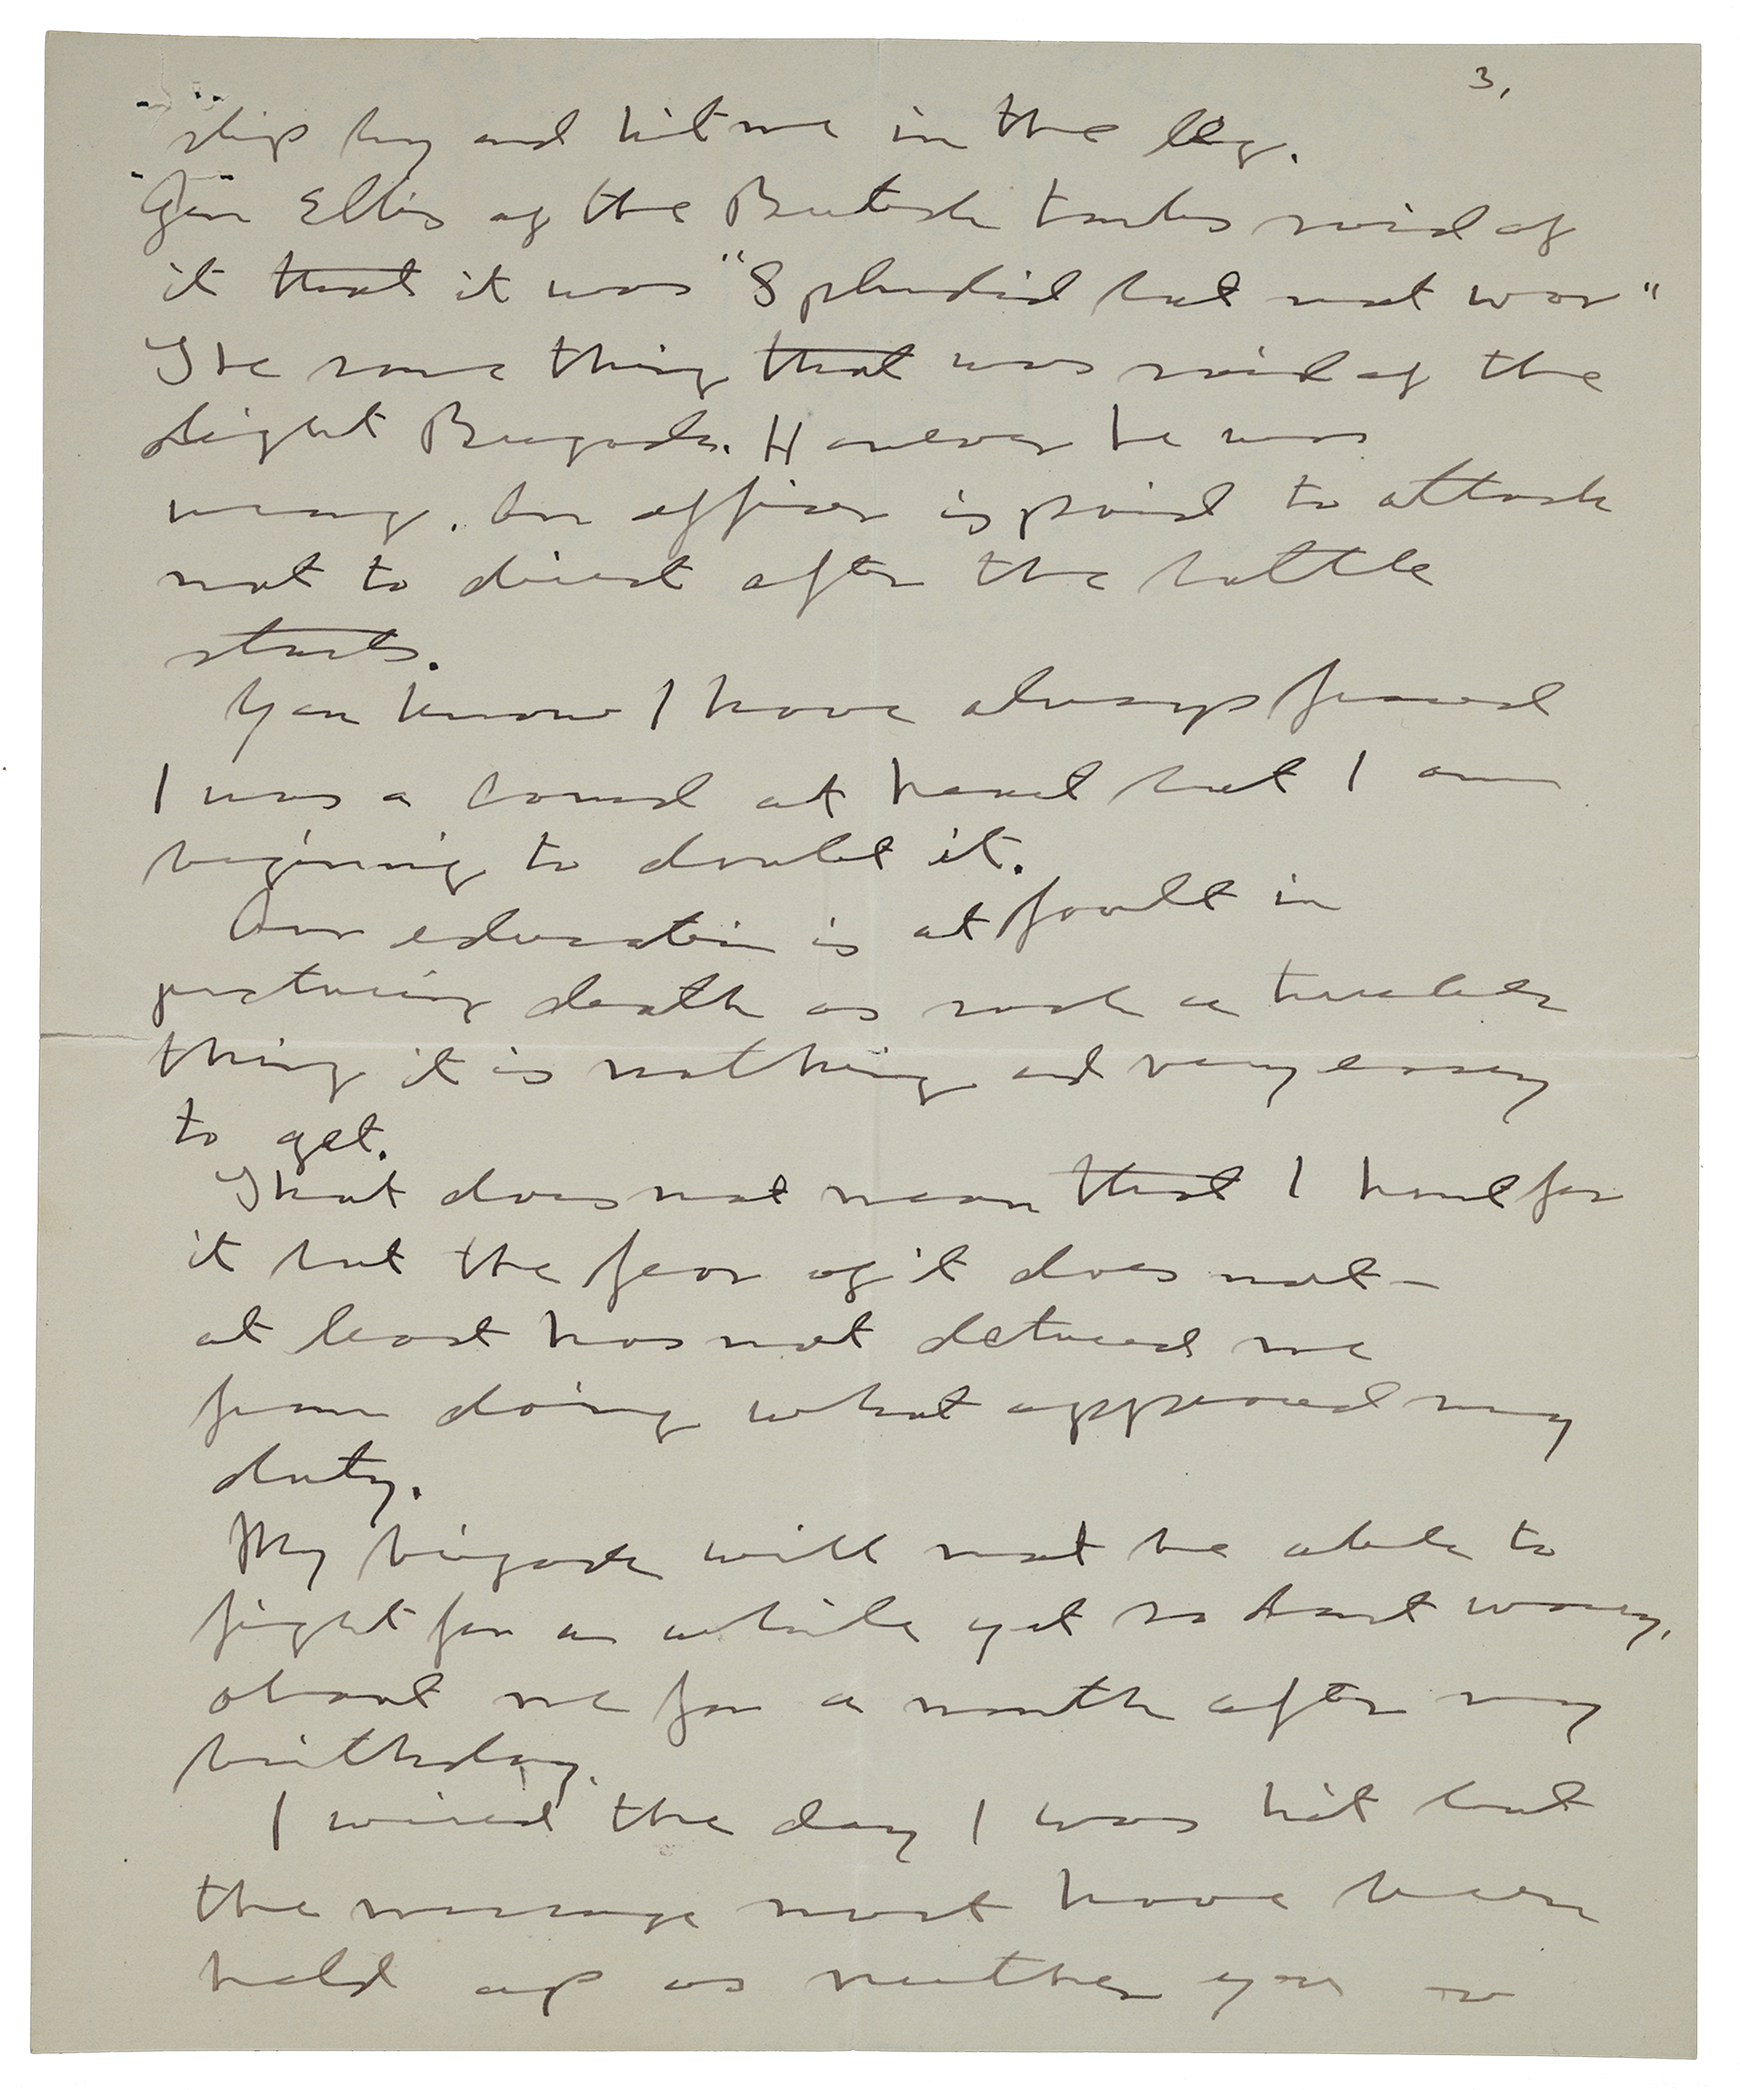 3.
slip by and hit me in the leg.
Gen Ellis of the British tanks said of
it that it was "Splendid but not war"
The same thing that was said of the
Light Brigade. However he was
wrong. An officer is paid to attack
not to direct after the battle
starts.
You know I have always feared
I was a coward at heart but I am
beginning to doubt it.
Our education is at fault in
picturing death as such a terrible
thing it is nothing and very easy
to get.
That does not mean that I hunt for
it but the fear of it does not –
at least has not deterred me
from doing what appeared my
duty.
My brigade will not be able to
fight for a while yet so dont worry.
about me for a month after my
birthday.
I wired the day I was hit but
the message must have been
held up as neither you or